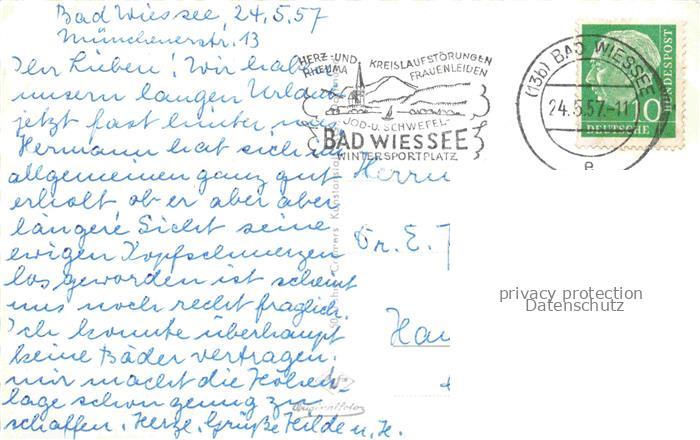 Bad Wiessee, 24.5.57
Münchenerstr. 13
Ihr Lieben! Wir haben
unsern langen Urlaub
jetzt fast hinter uns
Hermann hat sich im
allgemeinen ganz gut
erholt ob er aber aber
längere Sicht seine
ewigen Kopfschmerzen
los geworden ist scheint
uns noch recht fraglich.
Ich konnte überhaupt
keine Bäder vertragen.
mir macht die Höhen-
lage schon genug zu
schaffen. Herzl. Grüße Hilde u. H.
HERZ- UND KREISLAUFSTÖRUNGEN
RHEUMA FRAUENLEIDEN
JOD- U. SCHWEFEL-
BAD WIESSEE
WINTERSPORTPLATZ
(13b) BAD WIESSEE
24.5.57.-11
e
DEUTSCHE BUNDESPOST
10
Herrn
Dr. E.
Han
privacy protection
Datenschutz
Cramers Kunstanstalt
Originalfoto